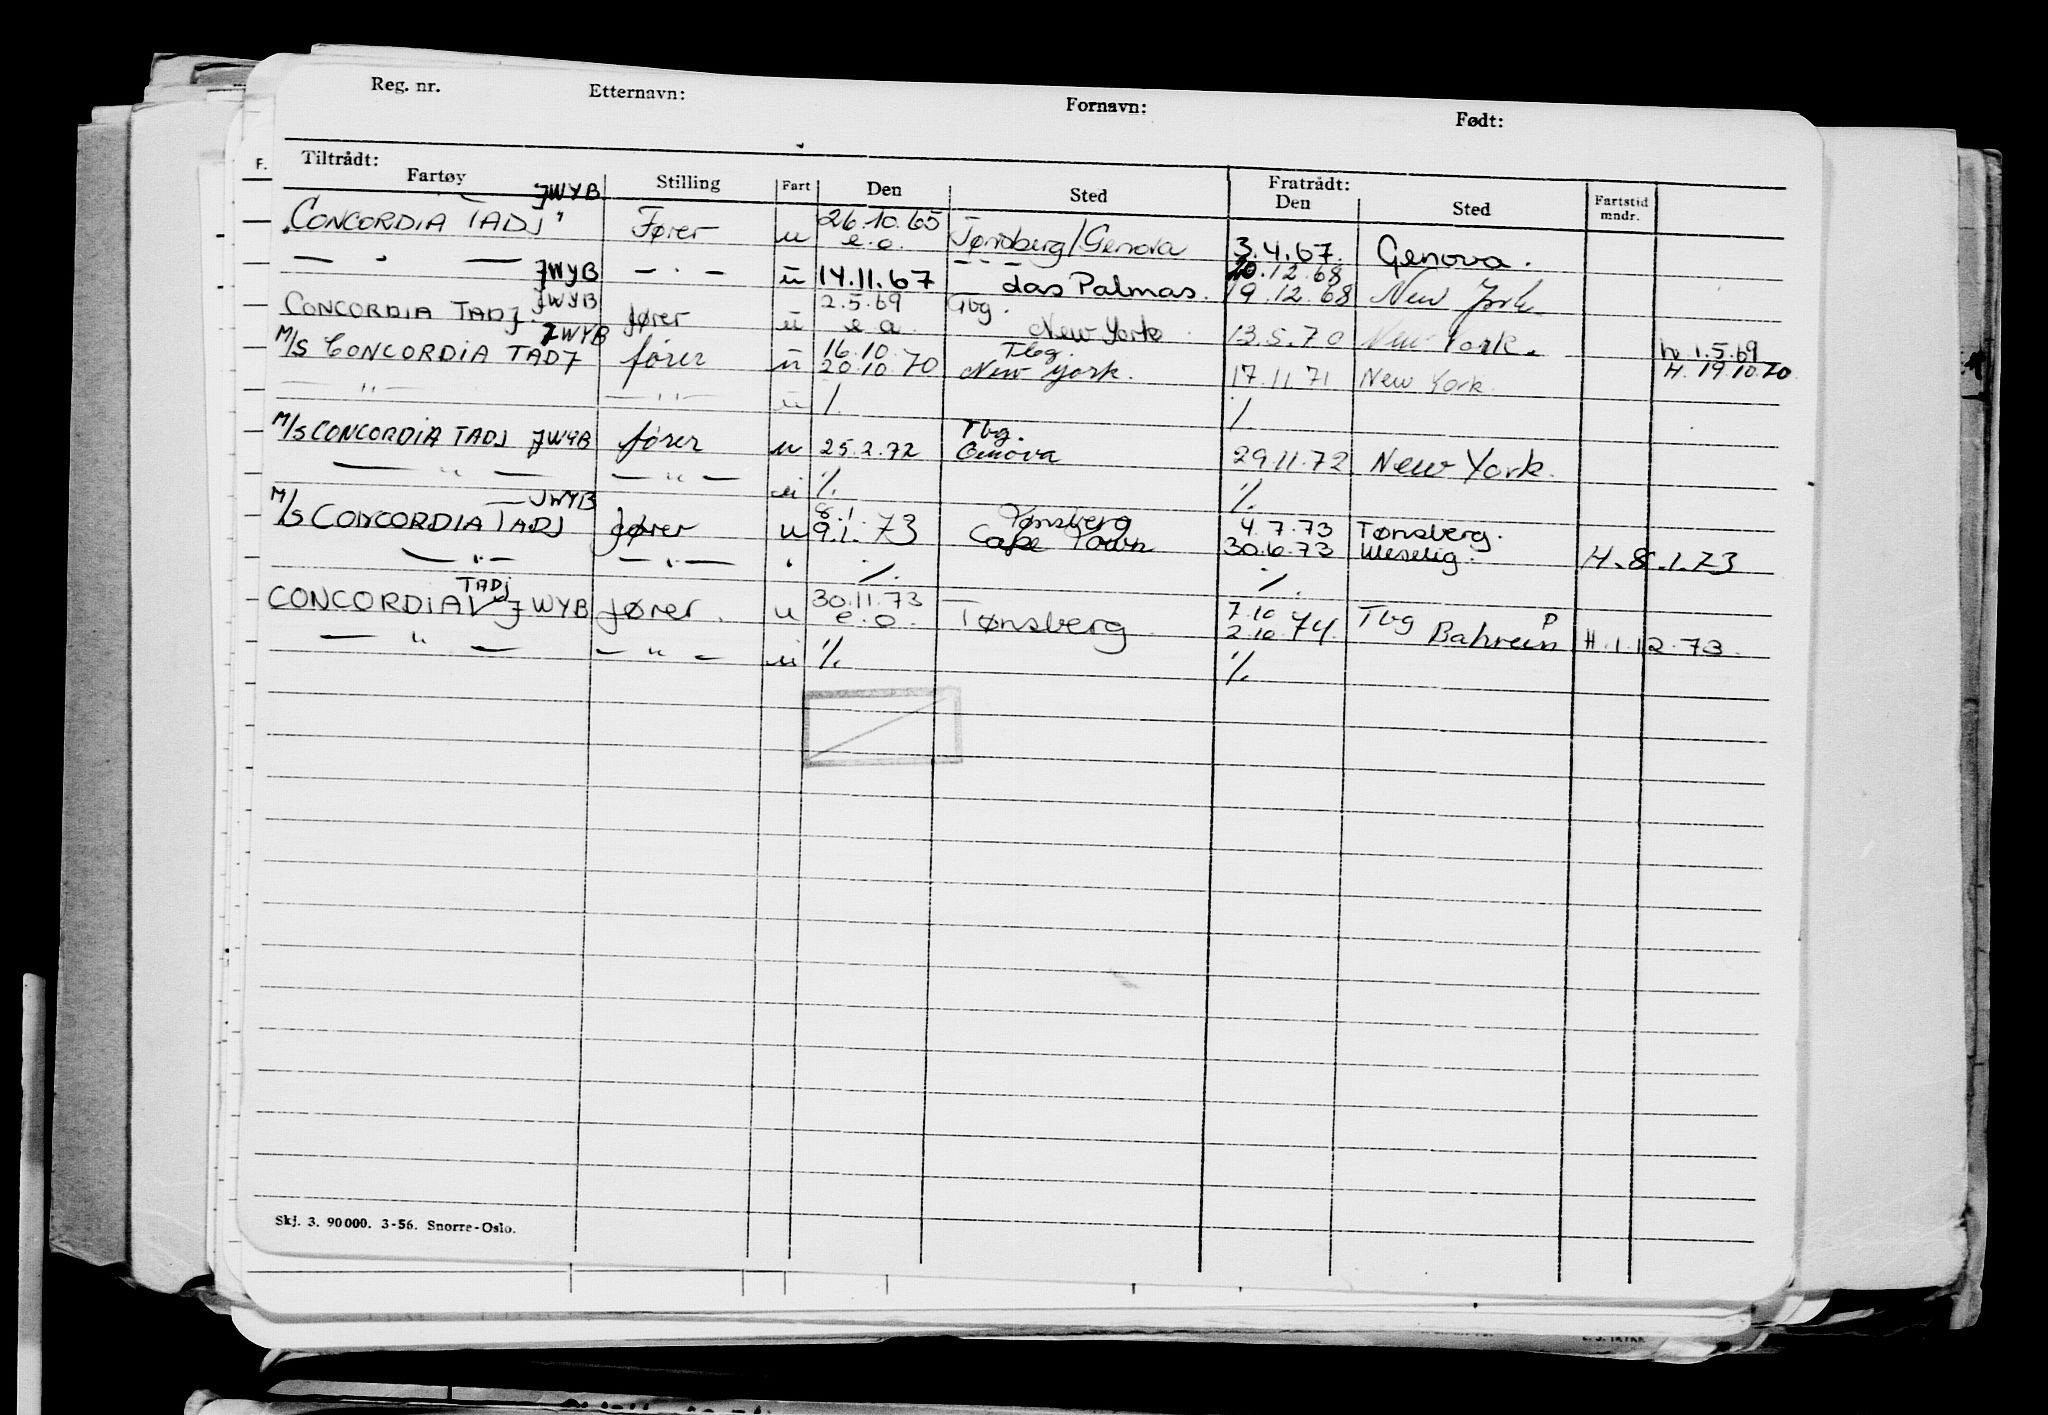 Reg. nr. Etternavn: Fornavn: Født:
F. Tiltrådt: Fratrådt:
Fartøy Stilling Fart Den Sted Den Sted Fartstid mndr.
JWYB
CONCORDIA TADJ " Fører u 26.10.65 e.o. Tønsberg/Genova 3.4.67. Genova.
— " — JWYB — " — u 14.11.67 — " — das Palmas. 20.12.68 19.12.68 New York
CONCORDIA TADJ. JWYB fører u 2.5.69 e a Tbg. New York 13.5.70 New York. h 1.5.69
M/S CONCORDIA TADJ JWYB fører u 16.10. 20.10.70 Tbg. New York. 17.11.71 New York H. 19.10.70
— " — — " — u % %
M/S CONCORDIA TADJ JWYB fører u 25.2.72 Tbg. Genova 29.11.72 New York.
— " — — " — u % %
M/S CONCORDIA TADJ JWYB fører u 8.1 9.1.73 Tønsberg Cape Town 4.7.73 30.6.73 Tønsberg. H. 8.1.73
— " — — " — " % %
CONCORDIA TADJ JWYB fører. u 30.11.73 e.o. Tønsberg 7.10 2.10.74. Tbg P Bahrein H. 1.12.73.
— " — — " — u % %
Skj. 3. 90000. 3-56. Snorre-Oslo.